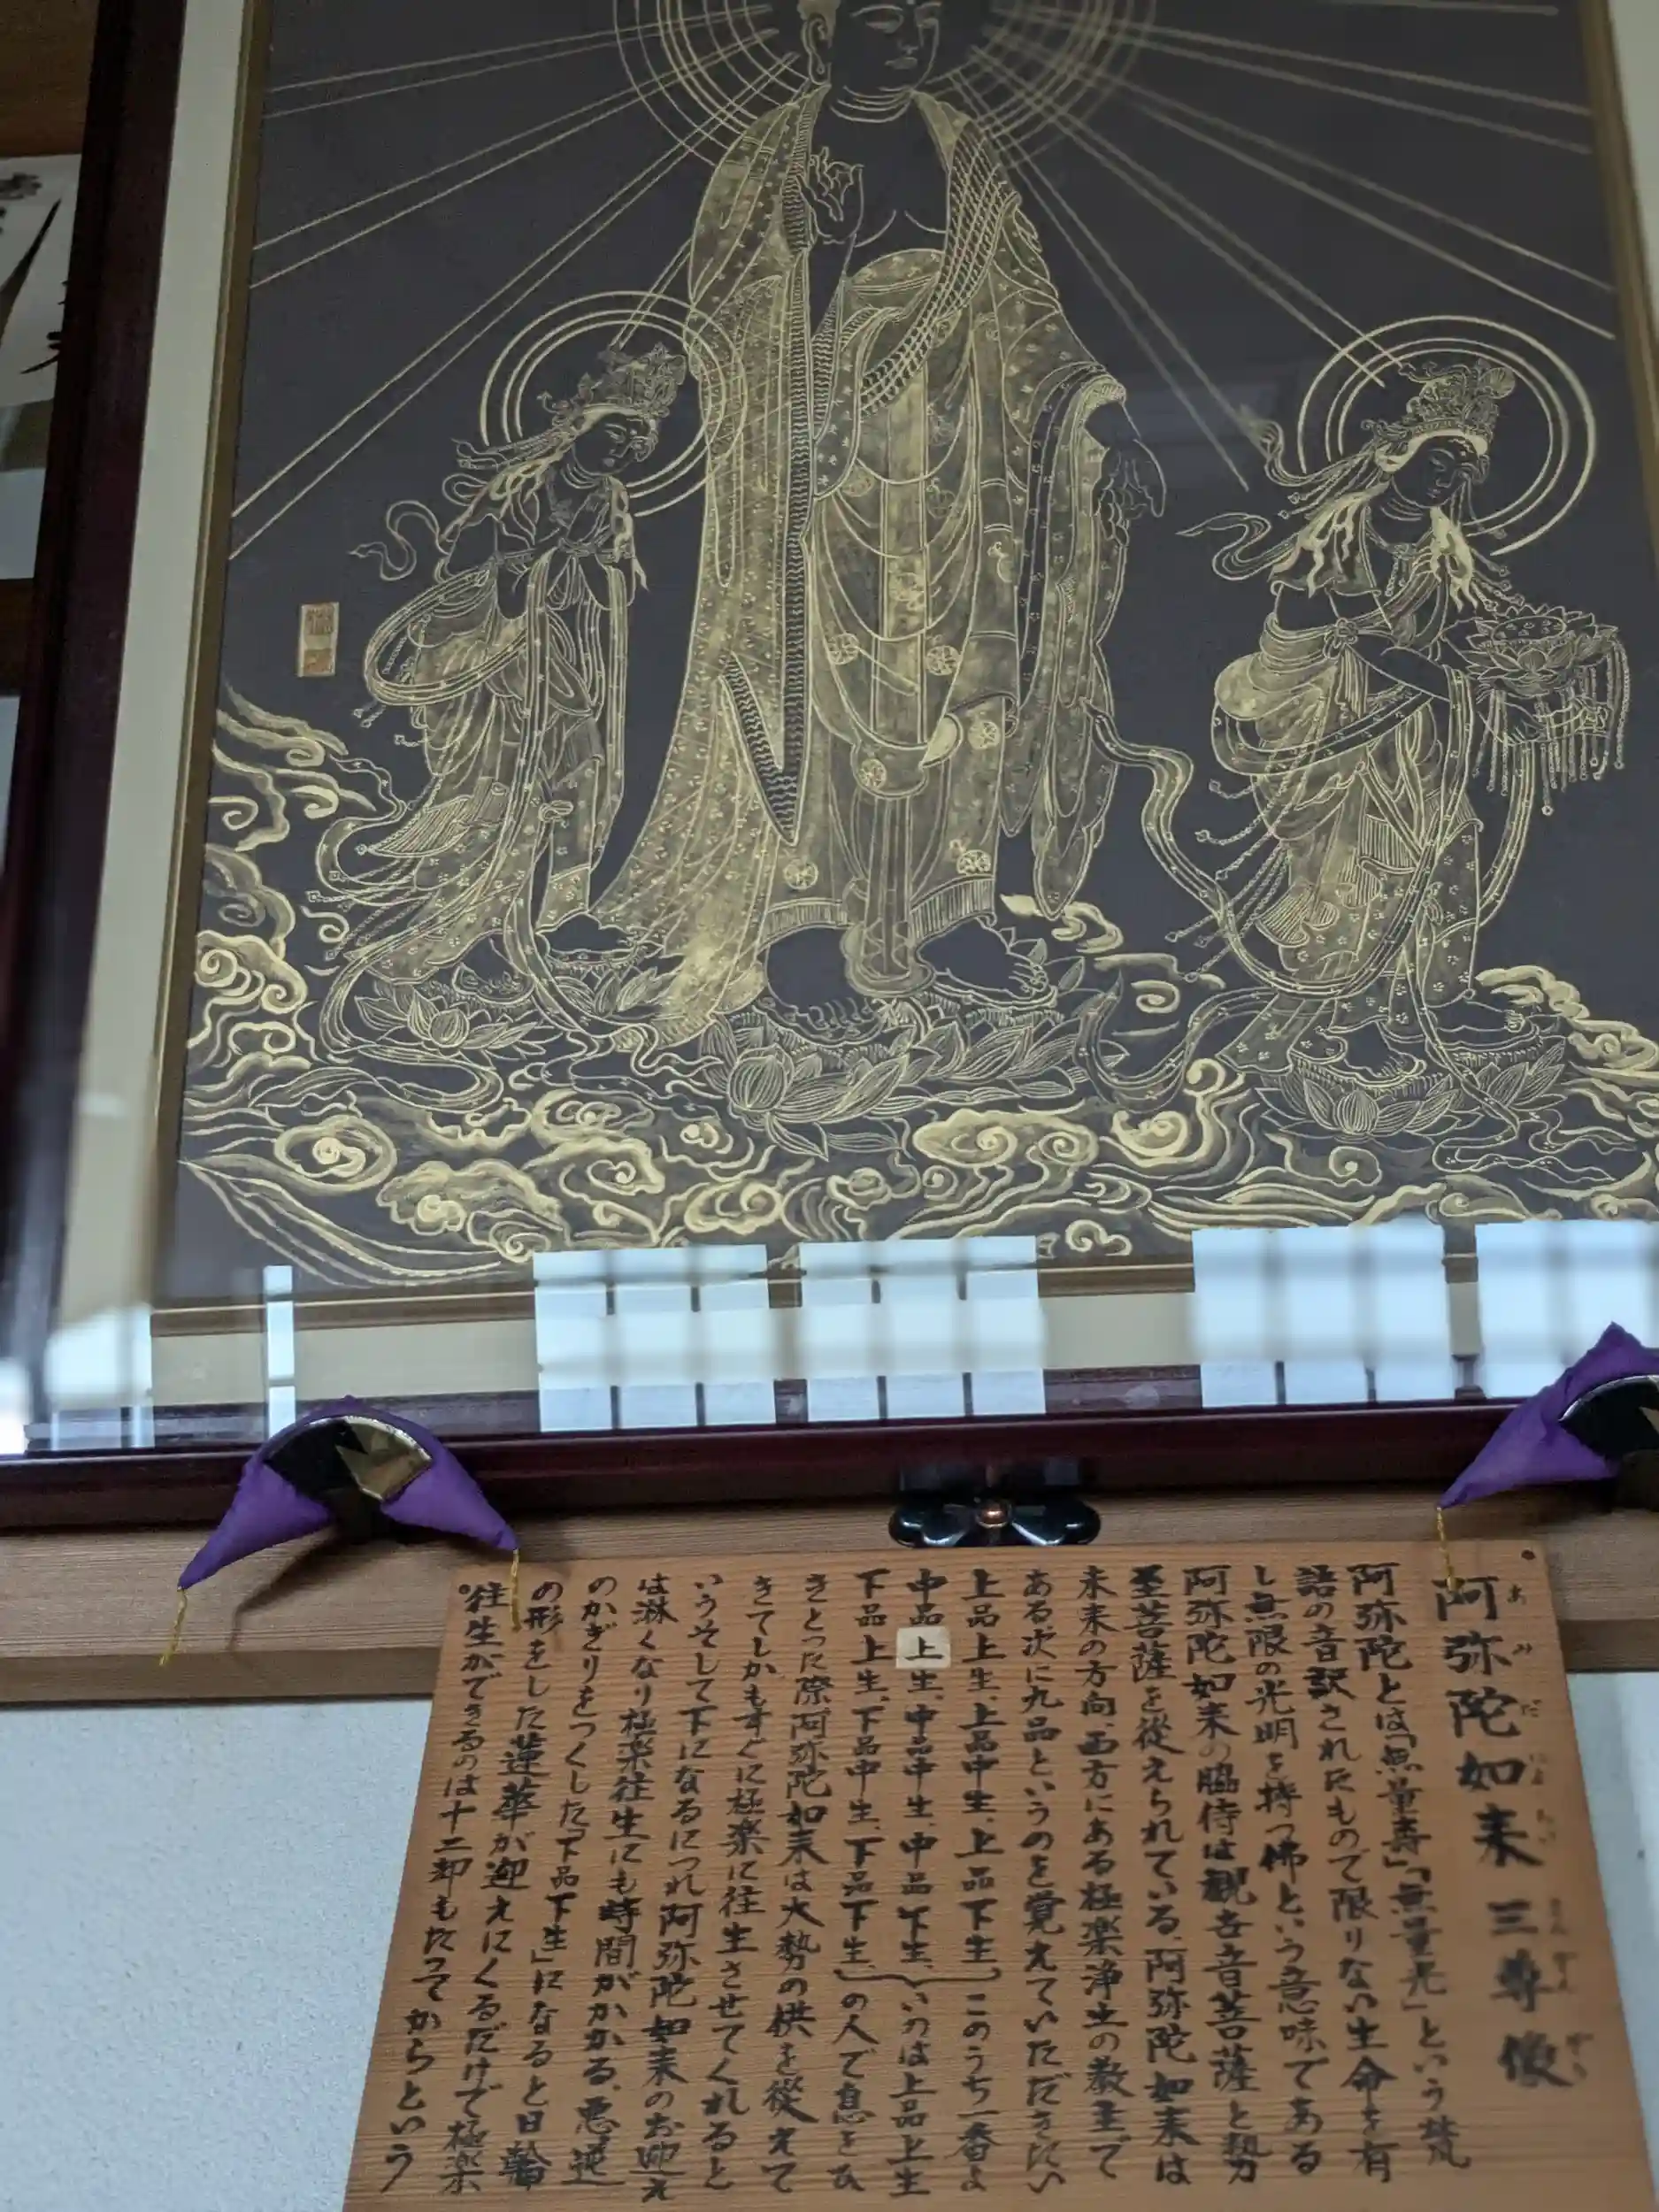 阿弥陀如来三尊像
あみだにょらいさんぞんぞう
阿弥陀とは「無量寿」「無量光」という梵
語の音訳されたもので限りない生命を有
し無限の光明を持つ佛という意味である
阿弥陀如来の脇侍は観音菩薩と勢
至菩薩を従えられている、阿弥陀如来は
未来の方向、西方にある極楽浄土の教主で
ある次に九品というのを覚えていただきたい
上品上生、上品中生、上品下生、このうち一番よ
中品上生、中品中生、中品下生、いのは上品上生
下品上生、下品中生、下品下生、の人で息をひ
きとった際、阿弥陀如来は大勢の供を従えて
きてしかもすぐに極楽に往生させてくれると
いうそして下になるにつれ阿弥陀如来のお迎え
は淋くなり極楽往生にも時間がかかる、悪逆
のかぎりをつくした「下品下生」になると日輪
の形をした蓮華が迎えにくるだけで極楽
往生ができるのは十二却もたってからという。